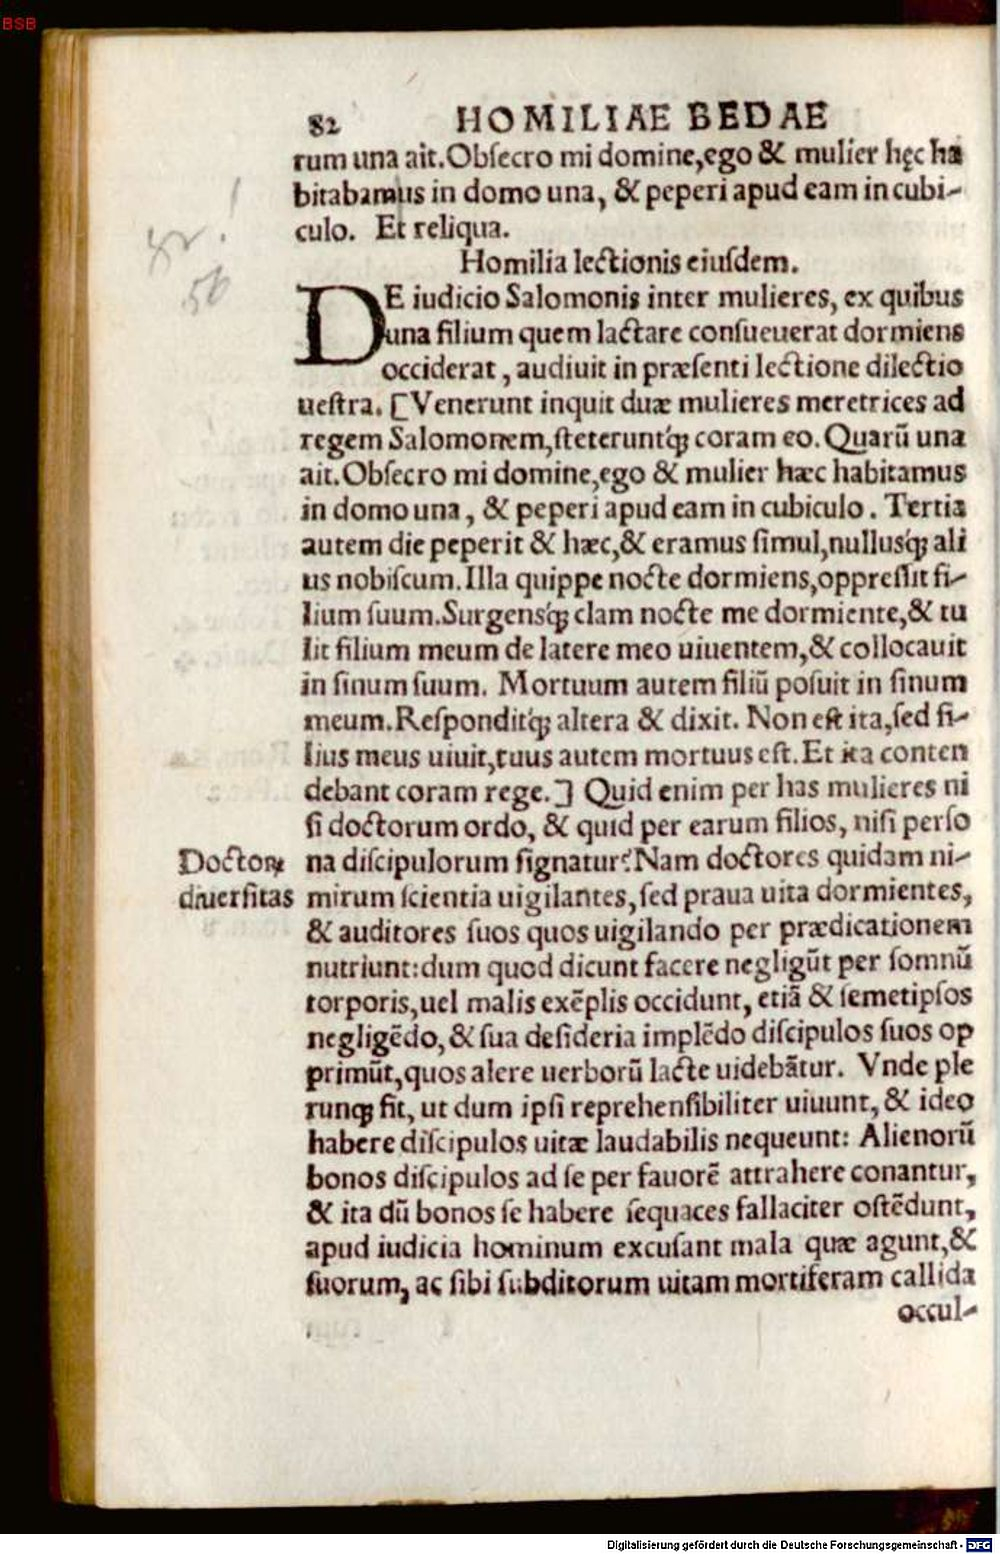 BSB
82 HOMILIAE BEDAE
rum una ait. Obſecro mi domine, ego & mulier hęc ha
bitabamus in domo una, & peperi apud eam in cubi-
culo. Et reliqua.
Homilia lectionis eiuſdem.
DE iudicio Salomonis inter mulieres, ex quibus
una filium quem lactare conſueuerat dormiens
occiderat, audiuit in præſenti lectione dilectio
ueſtra. [Venerunt inquit duæ mulieres meretrices ad
regem Salomonem, ſteteruntq́ꝫ coram eo. Quarũ una
ait. Obſecro mi domine, ego & mulier hæc habitamus
in domo una, & peperi apud eam in cubiculo. Tertia
autem die peperit & hæc, & eramus ſimul, nullusq́ꝫ ali
us nobiſcum. Illa quippe nocte dormiens, oppreſſit fi-
lium ſuum. Surgensq́ꝫ clam nocte me dormiente, & tu
lit filium meum de latere meo uiuentem, & collocauit
in ſinum ſuum. Mortuum autem filiũ poſuit in ſinum
meum. Reſponditq́ꝫ altera & dixit. Non eſt ita, ſed fi-
lius meus uiuit, tuus autem mortuus eſt. Et ita conten
debant coram rege.] Quid enim per has mulieres ni
ſi doctorum ordo, & quid per earum filios, niſi perſo
Doctorꝝ na diſcipulorum ſignatur? Nam doctores quidam ni-
diuerſitas mirum ſcientia uigilantes, ſed praua uita dormientes,
& auditores ſuos quos uigilando per prædicationem
nutriunt: dum quod dicunt facere negligũt per ſomnũ
torporis, uel malis exẽplis occidunt, etiã & ſemetipſos
negligẽdo, & ſua deſideria implẽdo diſcipulos ſuos op
primũt, quos alere uerborũ lacte uidebãtur. Vnde ple
runqꝫ fit, ut dum ipſi reprehenſibiliter uiuunt, & ideo
habere diſcipulos uitæ laudabilis nequeunt: Alienorũ
bonos diſcipulos ad ſe per fauorẽ attrahere conantur,
& ita dũ bonos ſe habere ſequaces fallaciter oſtẽdunt,
apud iudicia hominum excuſant mala quæ agunt, &
ſuorum, ac ſibi ſubditorum uitam mortiferam callida
occul-
Digitalisierung gefördert durch die Deutsche Forschungsgemeinschaft - DFG